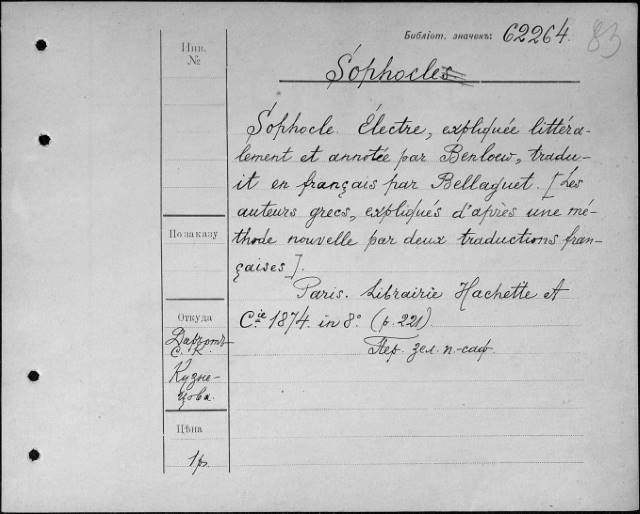 Библіот. значекъ: 62264. 83
Инв. №
Sophocles.
Sophocle. Électre, expliquée littéra-
lement et annotée par Benloew, tradu-
it en français par Bellaguet. [Les
auteurs grecs, expliqués d'après une mé-
thode nouvelle par deux traductions fran-
çaises].
По заказу
Paris. Librairie Hachette et
Cie 1874. in 8º (p. 221).
Пер. зел. п.-саф.
Откуда
Даромъ
С. К.
Кузне-
цова.
Цѣна
1р.